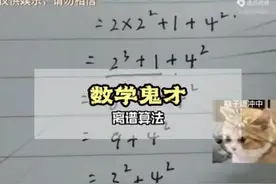 仅供娱乐，请勿相信
= 2×2²+1+4²
= 2³+1+4²
数学鬼才
离谱算法
= 9+4²
= 3²+4²